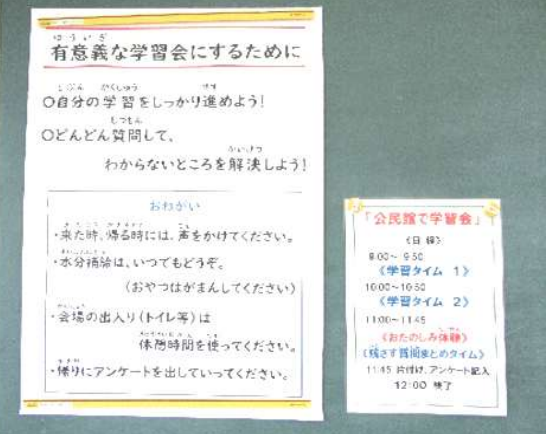 有意義な学習会にするために
○自分の学習をしっかり進めよう!
○どんどん質問して、
わからないところを解決しよう!
おねがい
・来た時、帰る時には、声をかけてください。
・水分補給は、いつでもどうぞ。
(おやつはがまんしてください)
・会場の出入り(トイレ等)は
休憩時間を使ってください。
・帰りにアンケートを出していってください。
「公民館で学習会」
《日程》
9:00~9:50
《学習タイム 1》
10:00~10:50
《学習タイム 2》
11:00~11:45
《おたのしみ体験》
《残さず質問まとめタイム》
11:45 片付け、アンケート記入
12:00 終了